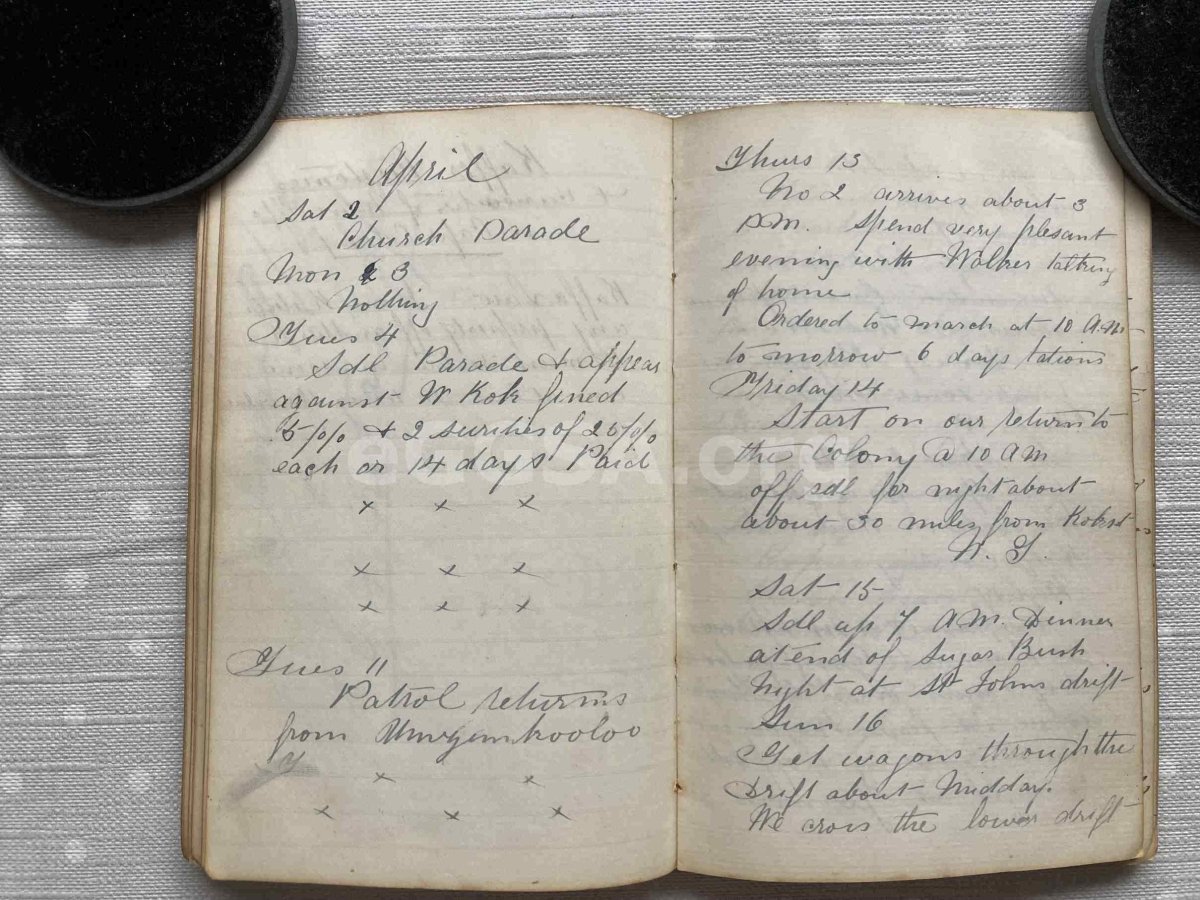 April
Sat 2
Church Parade
Mon 3
Nothing
Tues 4
Sdl Parade & appear
against W Kok fined
5/0/0 & 2 surities of 25/0/0
each or 14 days Paid
x x x
x x x
x x x
Tues 11
Patrol returns
from Umzemkooloo
x x
x x x
Thurs 13
No 2 arrives about 3
P.M. Spend very plesant
evening with Walker talking
of home
Ordered to march at 10 A.M.
to morrow 6 days rations
Friday 14
Start on our return to
the Colony @ 10 AM
off sdl for night about
about 30 miles from Kokst
Sat 15
Sdl up 7 A.M. Dinner
at end of Sugar Bush
Night at St Johns drift
Sun 16
Get wagons through the
Drift about Midday.
We cross the lower drift
eGGSA.org